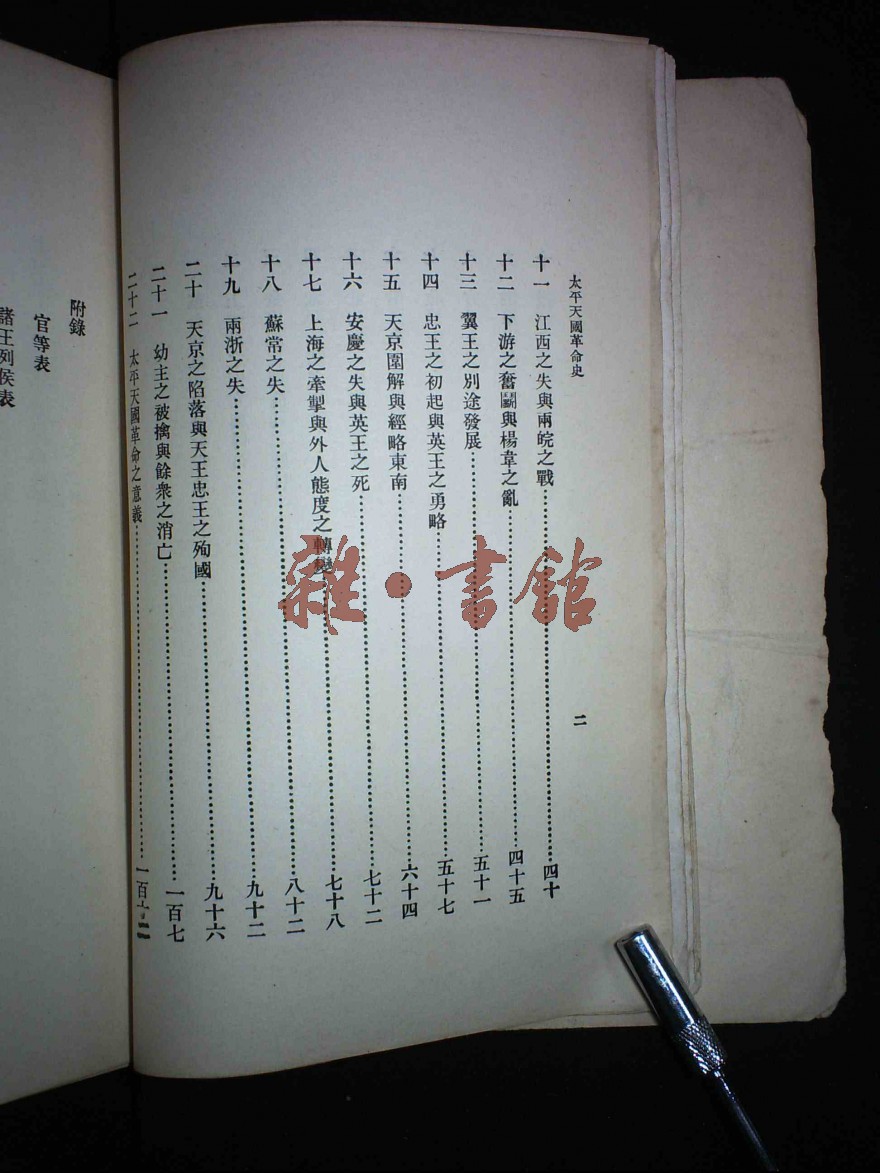 太平天國革命史
二
十一 江西之失與兩皖之戰 四十
十二 下游之奮鬭與楊韋之亂 四十五
十三 翼王之別途發展 五十一
十四 忠王之初起與英王之勇略 五十七
十五 天京圍解與經略東南 六十四
十六 安慶之失與英王之死 七十二
十七 上海之牽掣與外人態度之轉變 七十八
十八 蘇常之失 八十二
十九 兩浙之失 九十二
二十 天京之陷落與天王忠王之殉國 九十六
二十一 幼主之被擒與餘衆之消亡 一百七
二十二 太平天國革命之意義 一百十二
附錄
官等表
諸王列侯表
雜·書館